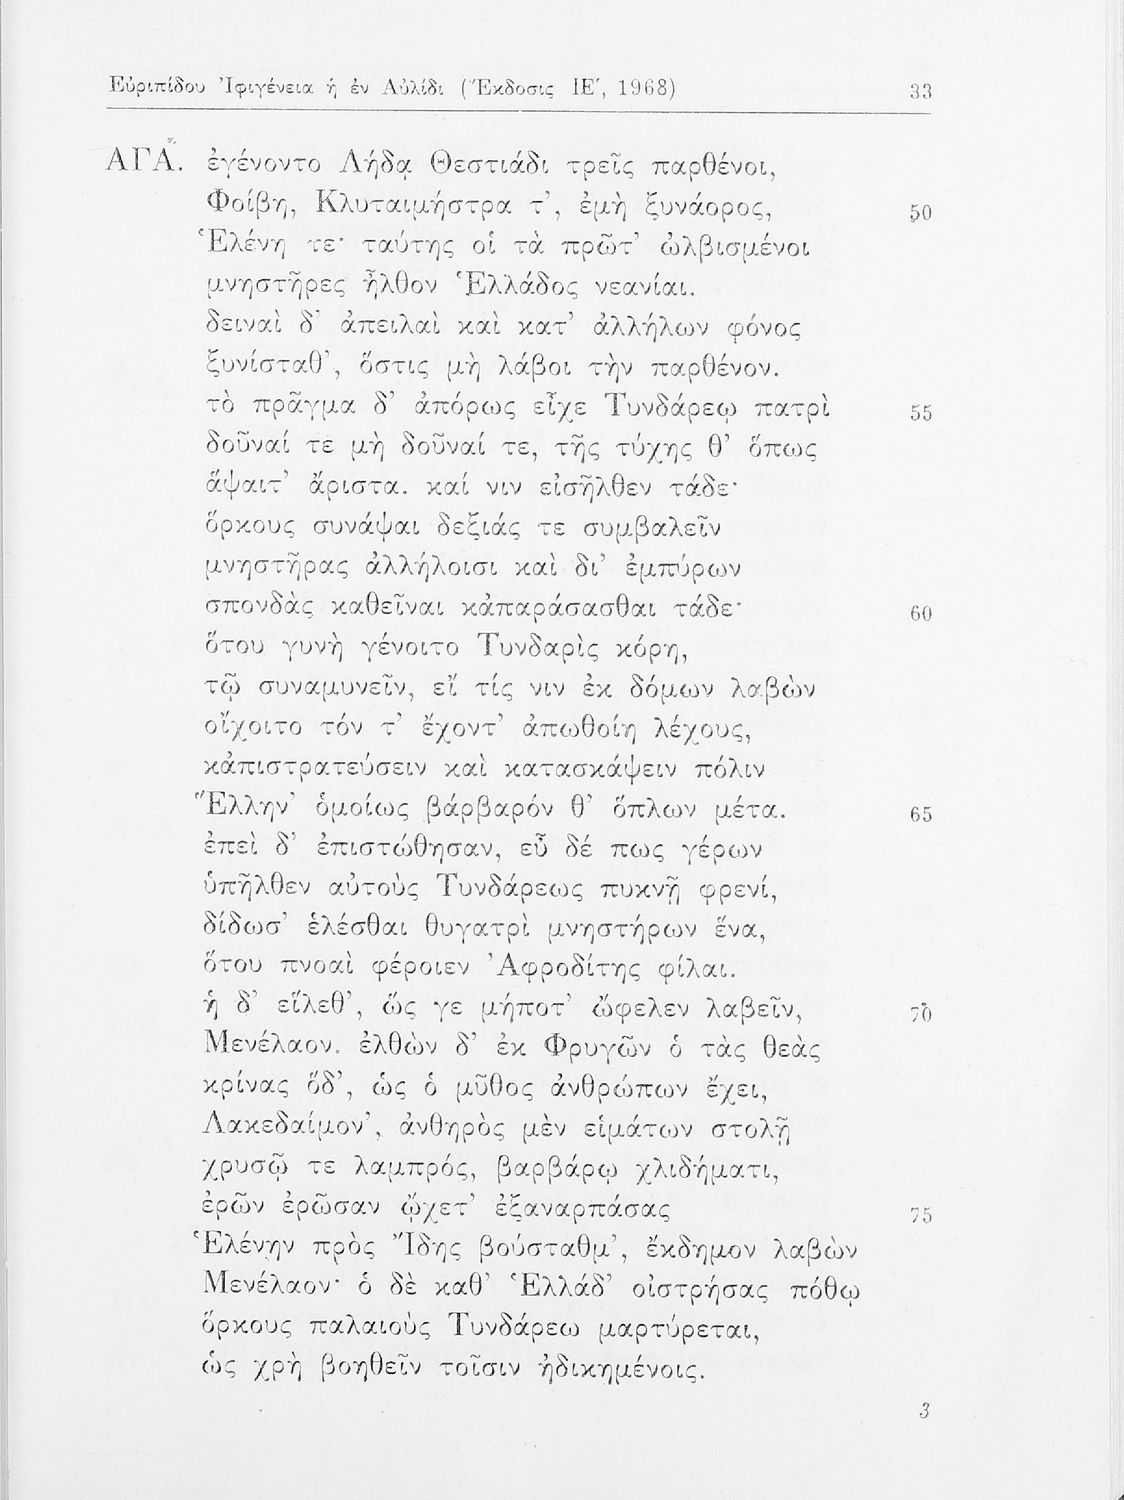 Εὐριπίδου Ἰφιγένεια ἡ ἐν Αὐλίδι (Ἔκδοσις ΙΕ΄, 1968) 33
ΑΓΑ. ἐγένοντο Λήδᾳ Θεστιάδι τρεῖς παρθένοι,
Φοίβη, Κλυταιμήστρα τ’, ἐμὴ ξυνάορος, 50
Ἑλένη τε· ταύτης οἱ τὰ πρῶτ’ ὠλβισμένοι
μνηστῆρες ἦλθον Ἑλλάδος νεανίαι.
δειναὶ δ’ ἀπειλαὶ καὶ κατ’ ἀλλήλων φόνος
ξυνίσταθ’, ὅστις μὴ λάβοι τὴν παρθένον.
τὸ πρᾶγμα δ’ ἀπόρως εἶχε Τυνδάρεῳ πατρὶ 55
δοῦναί τε μὴ δοῦναί τε, τῆς τύχης θ’ ὅπως
ἅψαιτ’ ἄριστα. καί νιν εἰσῆλθεν τάδε·
ὅρκους συνάψαι δεξιάς τε συμβαλεῖν
μνηστῆρας ἀλλήλοισι καὶ δι’ ἐμπύρων
σπονδὰς καθεῖναι κἀπαράσασθαι τάδε· 60
ὅτου γυνὴ γένοιτο Τυνδαρὶς κόρη,
τῷ συναμυνεῖν, εἴ τίς νιν ἐκ δόμων λαβὼν
οἴχοιτο τόν τ’ ἔχοντ’ ἀπωθοίη λέχους,
κἀπιστρατεύσειν καὶ κατασκάψειν πόλιν
Ἕλλην’ ὁμοίως βάρβαρόν θ’ ὅπλων μέτα. 65
ἐπεὶ δ’ ἐπιστώθησαν, εὖ δέ πως γέρων
ὑπῆλθεν αὐτοὺς Τυνδάρεως πυκνῇ φρενί,
δίδωσ’ ἑλέσθαι θυγατρὶ μνηστήρων ἕνα,
ὅτου πνοαὶ φέροιεν Ἀφροδίτης φίλαι.
ἡ δ’ εἵλεθ’, ὥς γε μήποτ’ ὤφελεν λαβεῖν, 70
Μενέλαον. ἐλθὼν δ’ ἐκ Φρυγῶν ὁ τὰς θεὰς
κρίνας ὅδ’, ὡς ὁ μῦθος ἀνθρώπων ἔχει,
Λακεδαίμον’, ἀνθηρὸς μὲν εἱμάτων στολῇ
χρυσῷ τε λαμπρός, βαρβάρῳ χλιδήματι,
ἐρῶν ἐρῶσαν ᾤχετ’ ἐξαναρπάσας 75
Ἑλένην πρὸς Ἴδης βούσταθμ’, ἔκδημον λαβὼν
Μενέλαον· ὁ δὲ καθ’ Ἑλλάδ’ οἰστρήσας πόθῳ
ὅρκους παλαιοὺς Τυνδάρεω μαρτύρεται,
ὡς χρὴ βοηθεῖν τοῖσιν ἠδικημένοις.
3